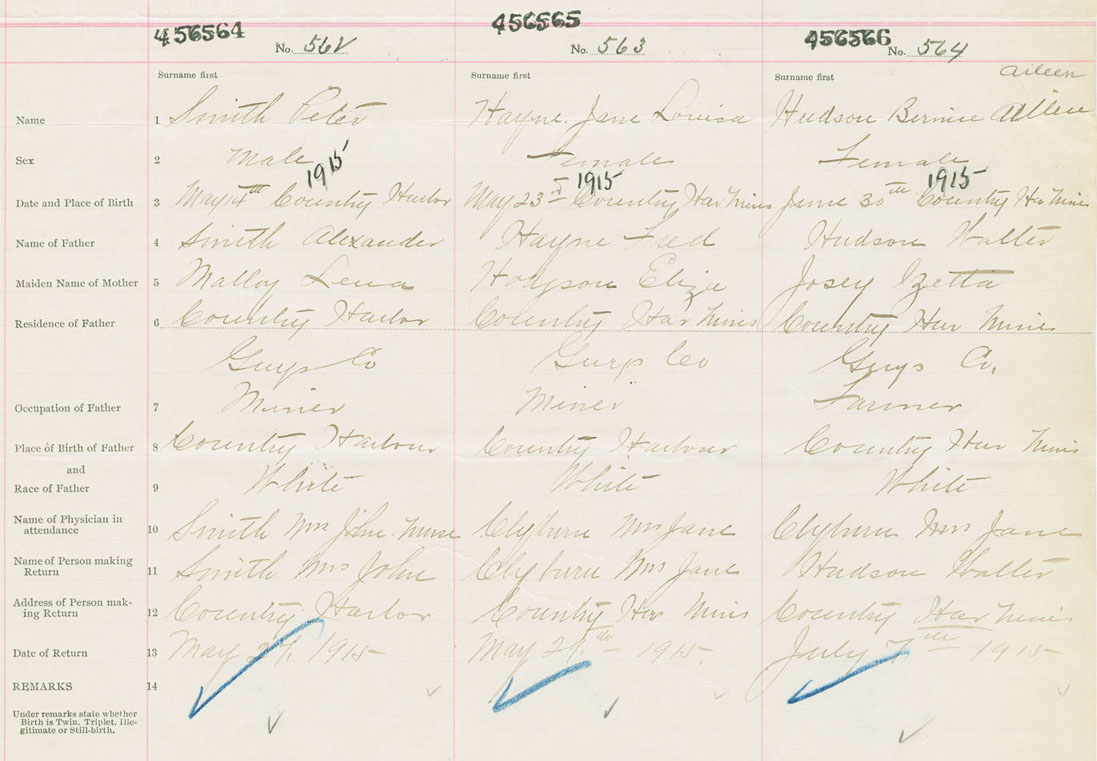 456564 456565 456566
No. 562 No. 563 No. 564
Surname first Surname first Surname first Aileen
Name 1 Smith Peter Hayne Jane Louisa Hudson Bernice
Sex 2 Male Female Female
1915 1915 1915
Date and Place of Birth 3 May Country Harbor May 23rd Country Har Mines June 30th Country Har Mines
Name of Father 4 Smith Alexander Hayne Fred Hudson Walter
Maiden Name of Mother 5 Malloy Lena Hodgson Eliza Josey Izetta
Residence of Father 6 Country Harbor Country Har Mines Country Har Mines
Guys Co Guys Co Guys Co.
Occupation of Father 7 Miner Miner Farmer
Place of Birth of Father 8 Country Harbour Country Harbour Country Har Mines
and
Race of Father 9 White White White
Name of Physician in
attendance 10 Smith Mrs John. Nurse Clyburn Mrs Jane Clyburn Mrs Jane
Name of Person making
Return 11 Smith Mrs John Clyburn Mrs Jane Hudson Walter
Address of Person mak-
ing Return 12 Country Harbor Country Har Mines Country Har Mines
Date of Return 13 May 1915 May 29th 1915. July 7th 1915
REMARKS 14
Under remarks state whether
Birth is Twin, Triplet, Ille-
gitimate or Still-birth.